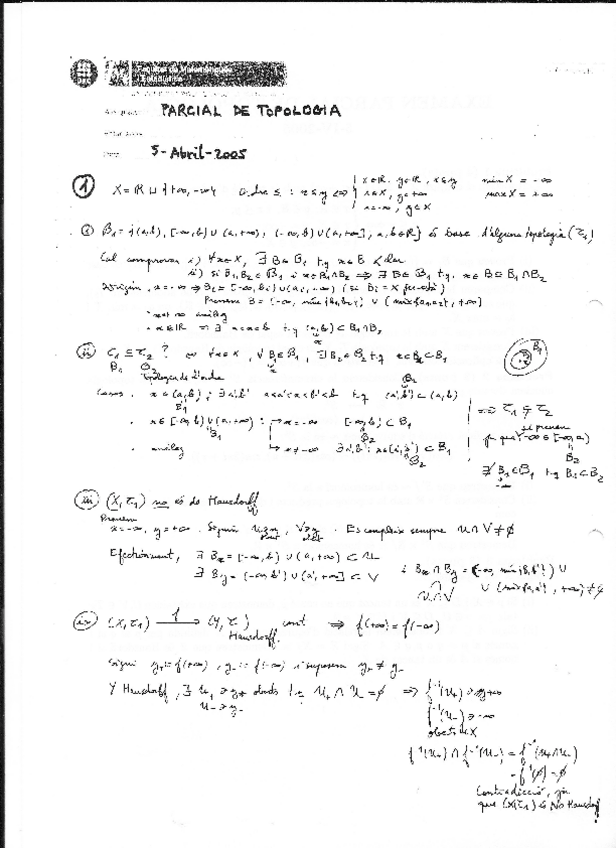 PARCIAL DE TOPOLOGIA
5-Abril-2005
① X = ℝ ⊔ {+∞, -∞} Ordre ≤ : x ≤ y ⟺ { x∈ℝ, y∈ℝ, x≤y min X = -∞
x∈X, y=+∞ max X = +∞
x=-∞, y∈X
ⓘ B₁ = {(a,b), [-∞,b) ∪ (a,+∞), (-∞,b) ∪ (a,+∞], a,b∈ℝ} és base d'alguna topologia (τ₁)
Cal comprovar i) ∀x∈X, ∃ B∈B₁ t.q. x∈B clar
ii) si B₁,B₂ ∈ B₁ i x∈B₁∩B₂ ⟹ ∃ B∈B₁ t.q. x∈B⊂B₁∩B₂
x = -∞ ⟹ Bᵢ = [-∞, bᵢ) ∪ (aᵢ, +∞)
Prenem B = [-∞, min{b₁,b₂}) ∪ (max{a₁,a₂}, +∞)
x=+∞ anàleg
x∈ℝ ⟹ ∃ a<x<b t.q. (a,b) ⊂ B₁∩B₂
ⓘⓘ τ₁ ⊆ τ₂ ? ∀x∈X, ∀B₁∈B₁, ∃B₂∈B₂ t.q. x∈B₂⊂B₁
topologia de l'ordre
Casos . x∈(a,b) ; ∃ a'b' a<a'<x<b'<b t.q. (a',b') ⊂ (a,b)
⟹ τ₁ ⊊ τ₂
. x∈[-∞,b) ∪ (a,+∞) : → x=-∞ [-∞,b) ⊂ B₁
. anàleg → x≠-∞ ∃ a',b' : x∈(a',b') ⊂ B₁
ja que -∞∈[-∞,a)
∄ B₁∈B₁ t.q. B₁⊂B₂
ⓘⓘⓘ (X,τ₁) no és de Hausdorff
Prenem
x=-∞, y=+∞. Siguin U∋x, V∋y. Es compleix sempre U∩V≠∅
Efectivament, ∃ Bₓ = [-∞,b) ∪ (a,+∞) ⊂ U
∃ B_y = (-∞,b') ∪ (a',+∞] ⊂ V
i Bₓ∩B_y = (-∞, min{b,b'}) ∪
∪ (max{a,a'}, +∞) ≠ ∅
U∩V
ⓘⓥ (X,τ₁) —f→ (Y,τ) cont ⟹ f(+∞) = f(-∞)
Hausdorff.
Siguin y₊=f(+∞), y₋=f(-∞) i suposem y₊ ≠ y₋
Y Hausdorff, ∃ U₊∋y₊ oberts t.q. U₊∩U₋=∅ ⟹ f⁻¹(U₊)∋+∞
U₋∋y₋
f⁻¹(U₋)∋-∞
oberts de X
f⁻¹(U₊)∩f⁻¹(U₋) = f⁻¹(U₊∩U₋)
= f⁻¹(∅) = ∅
Contradicció, ja
que (X,τ₁) és No Hausdorff